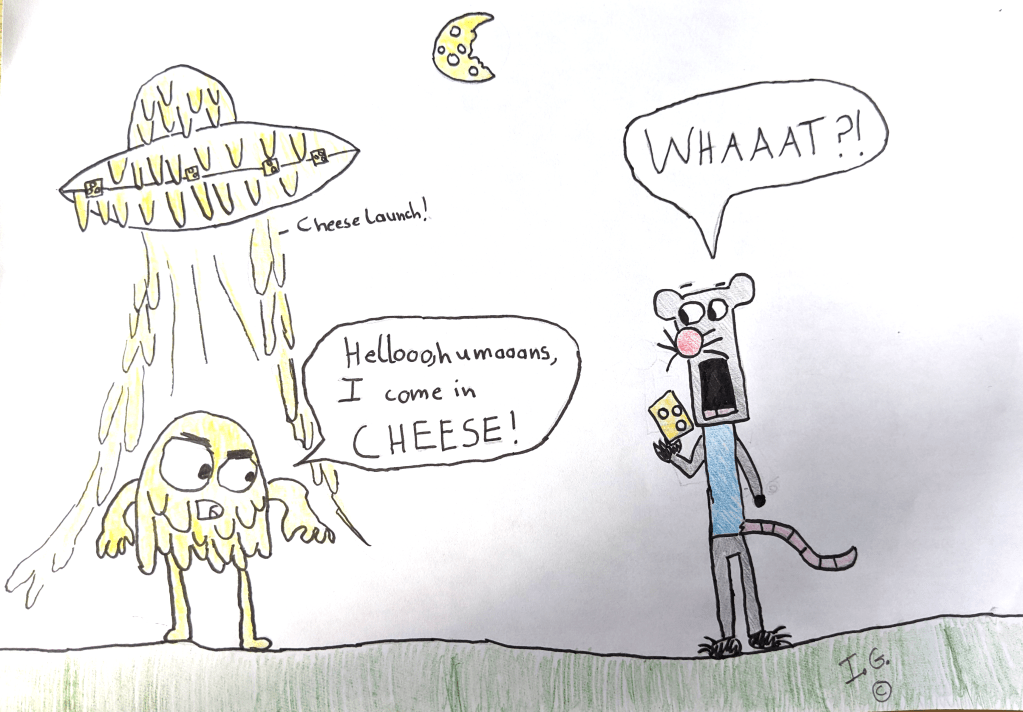 WHAAAT?!
Cheese Launch!
Hellooo, humaaans,
I come in
CHEESE!
I. G.
©